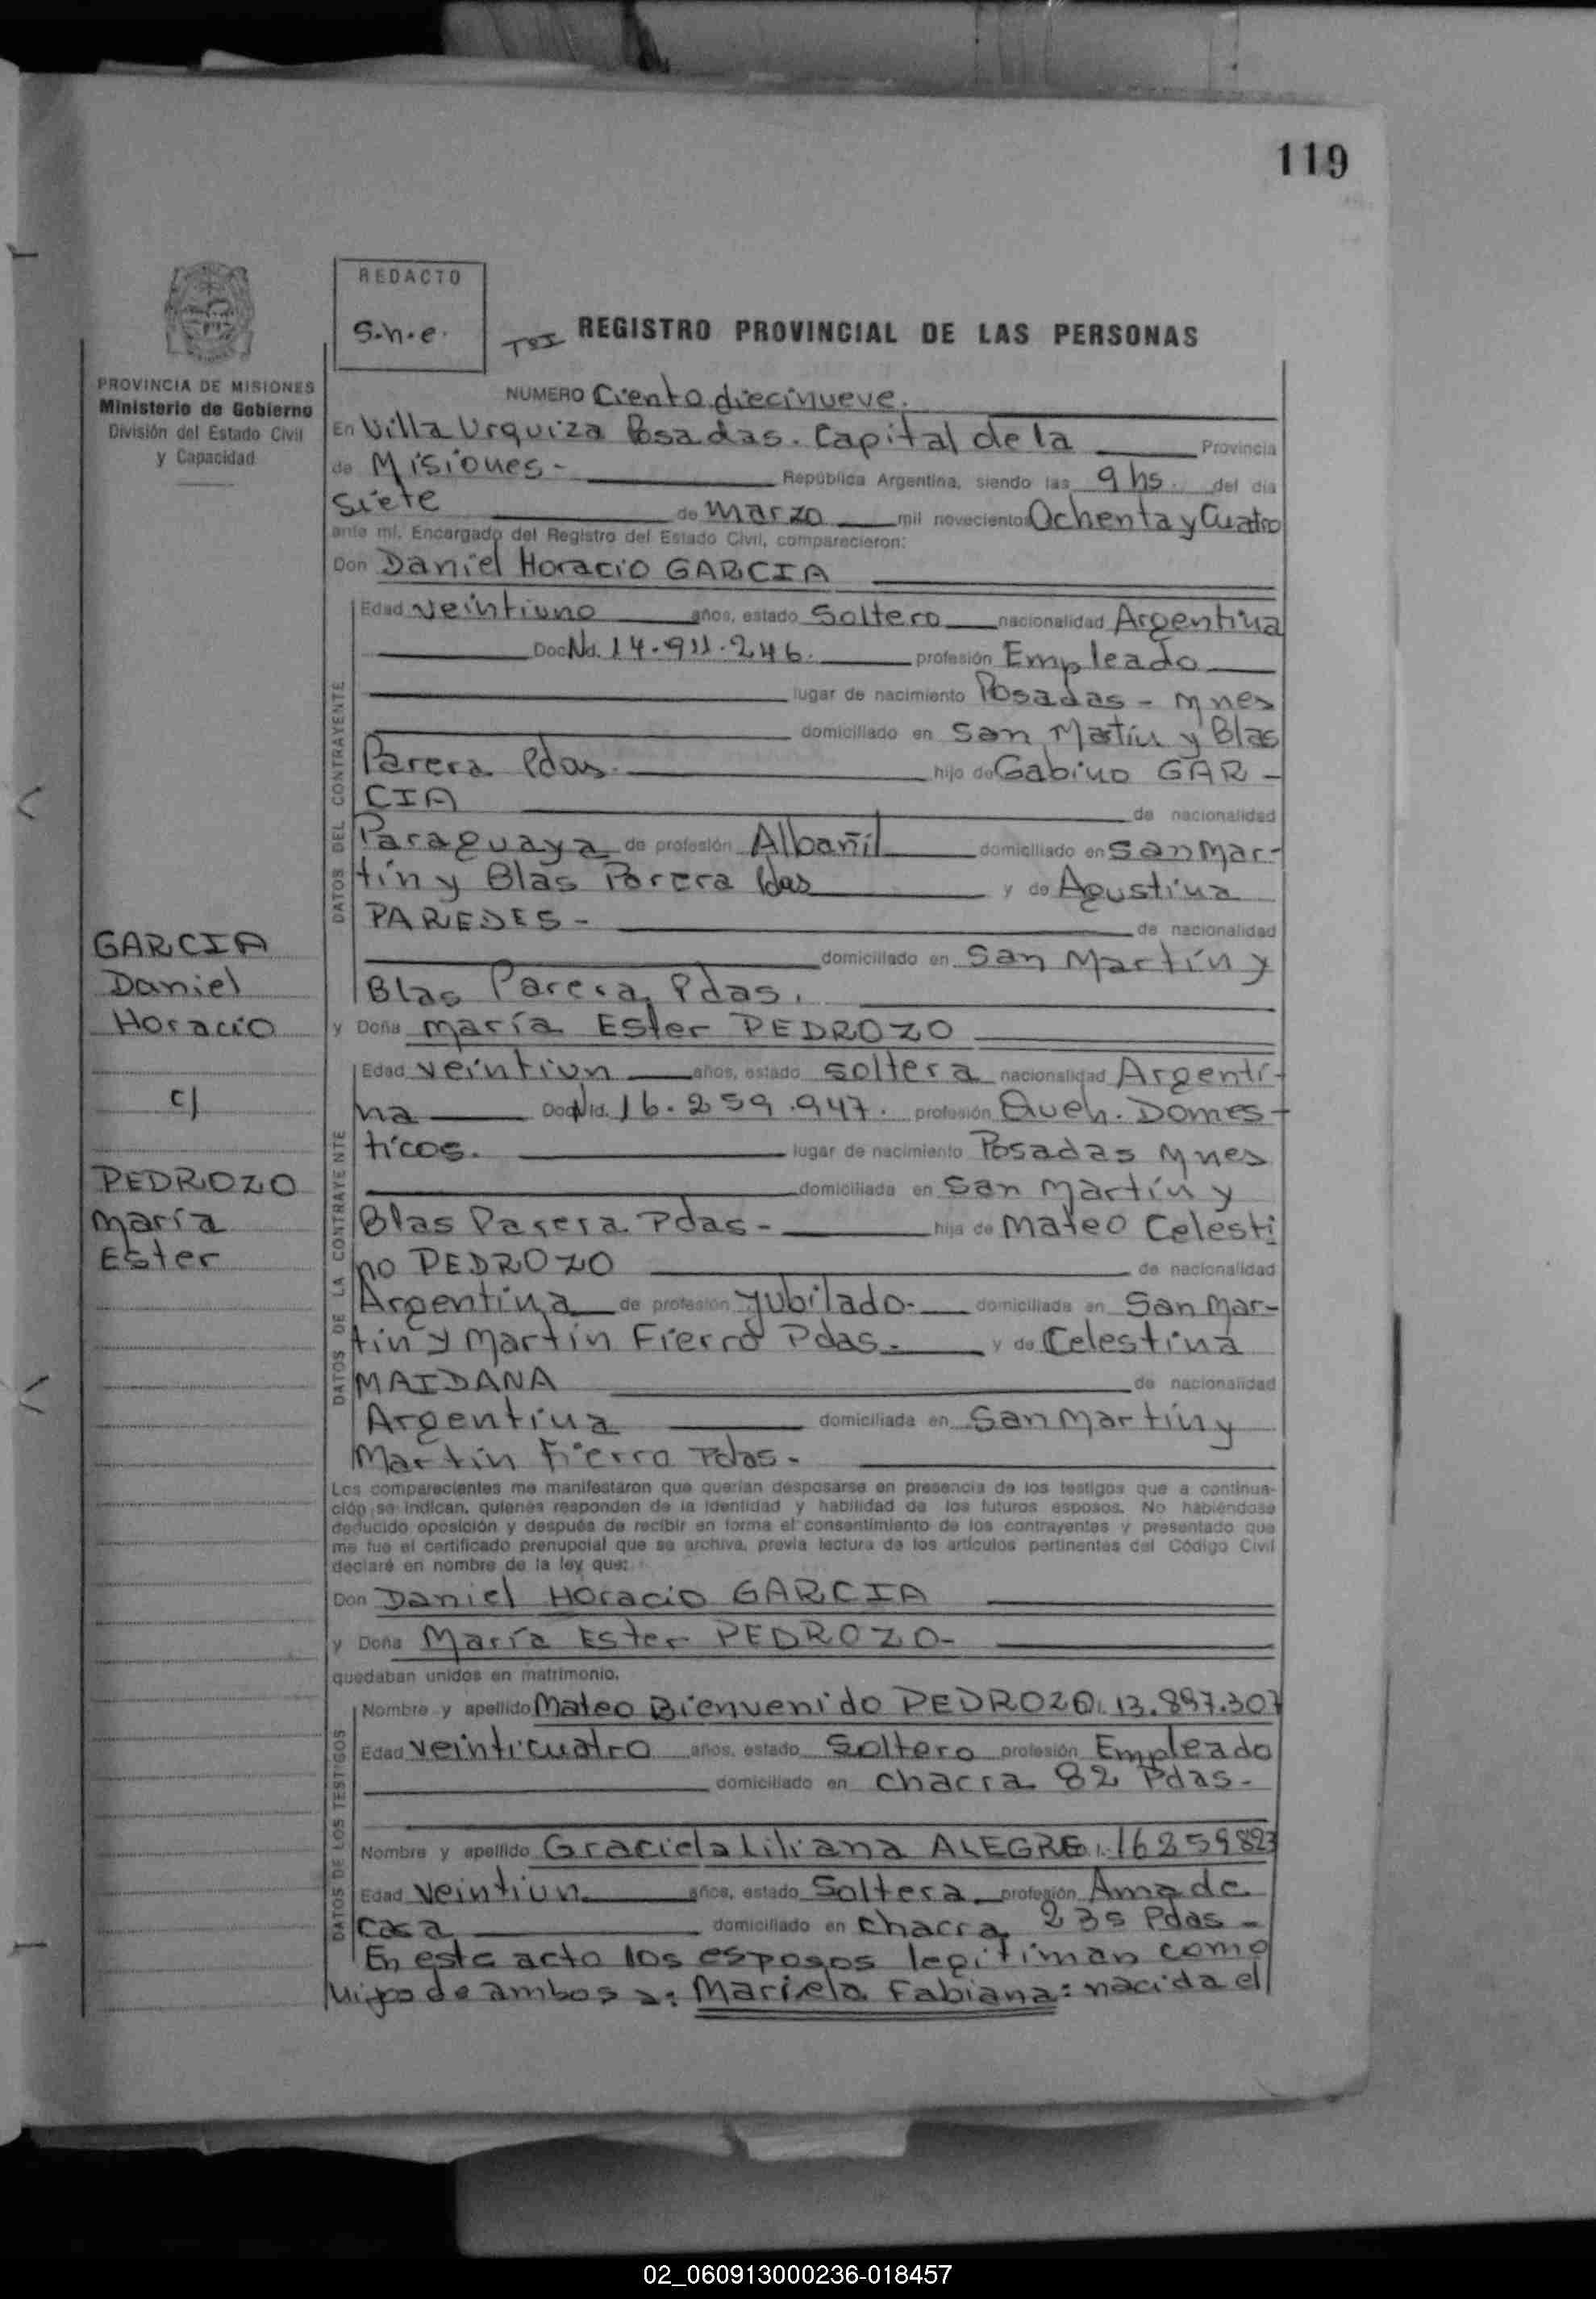 119
REDACTO
S.n.e.
REGISTRO PROVINCIAL DE LAS PERSONAS
PROVINCIA DE MISIONES
Ministerio de Gobierno
División del Estado Civil
y Capacidad
NUMERO Ciento diecinueve.
En Villa Urquiza Posadas. Capital de la Provincia
de Misiones- República Argentina, siendo las 9 hs. del día
Siete de marzo mil novecientos Ochenta y Cuatro
ante mí, Encargado del Registro del Estado Civil, comparecieron:
Don Daniel Horacio GARCIA
DATOS DEL CONTRAYENTE
Edad veintiuno años, estado Soltero nacionalidad Argentina
Doc. Nd. 14.911.246. profesión Empleado
lugar de nacimiento Posadas - Mnes
domiciliado en San Martín y Blas
Parera Pdas. hijo de Gabino GAR-
CIA de nacionalidad
Paraguaya de profesión Albañil domiciliado en San Mar-
tín y Blas Parera Pdas y de Agustina
PAREDES - de nacionalidad
domiciliado en San Martín y
Blas Parera, Pdas.
y Doña María Ester PEDROZO
DATOS DE LA CONTRAYENTE
Edad veintiun años, estado soltera nacionalidad Argenti-
na Doc Nd. 16.259.947. profesión Queh. Domes-
ticos. lugar de nacimiento Posadas Mnes
domiciliada en San Martín y
Blas Parera. Pdas - hija de Mateo Celesti
no PEDROZO de nacionalidad
Argentina de profesión Jubilado. domiciliada en San Mar-
tin y Martín Fierro Pdas. y de Celestina
MAIDANA de nacionalidad
Argentina domiciliada en San Martín y
Martín Fierro Pdas.
Los comparecientes me manifestaron que querían desposarse en presencia de los testigos que a continua-
ción se indican, quienes responden de la identidad y habilidad de los futuros esposos. No habiéndose
deducido oposición y después de recibir en forma el consentimiento de los contrayentes y presentado que
me fue el certificado prenupcial que se archiva, previa lectura de los artículos pertinentes del Código Civil
declaré en nombre de la ley que:
Don Daniel Horacio GARCIA
y Doña María Ester PEDROZO-
quedaban unidos en matrimonio.
DATOS DE LOS TESTIGOS
Nombre y apellido Mateo Bienvenido PEDROZO. 13.897.307
Edad veinticuatro años, estado Soltero profesión Empleado
domiciliado en chacra 82 Pdas-
Nombre y apellido Graciela Liliana ALEGRE. 16259823
Edad veintiun años, estado Soltera profesión Ama de
casa domiciliado en chacra 235 Pdas-
En este acto los esposos legitiman como
hijos de ambos a: Mariela Fabiana: nacida el
GARCIA
Daniel
Horacio
c/
PEDROZO
María
Ester
02_060913000236-018457